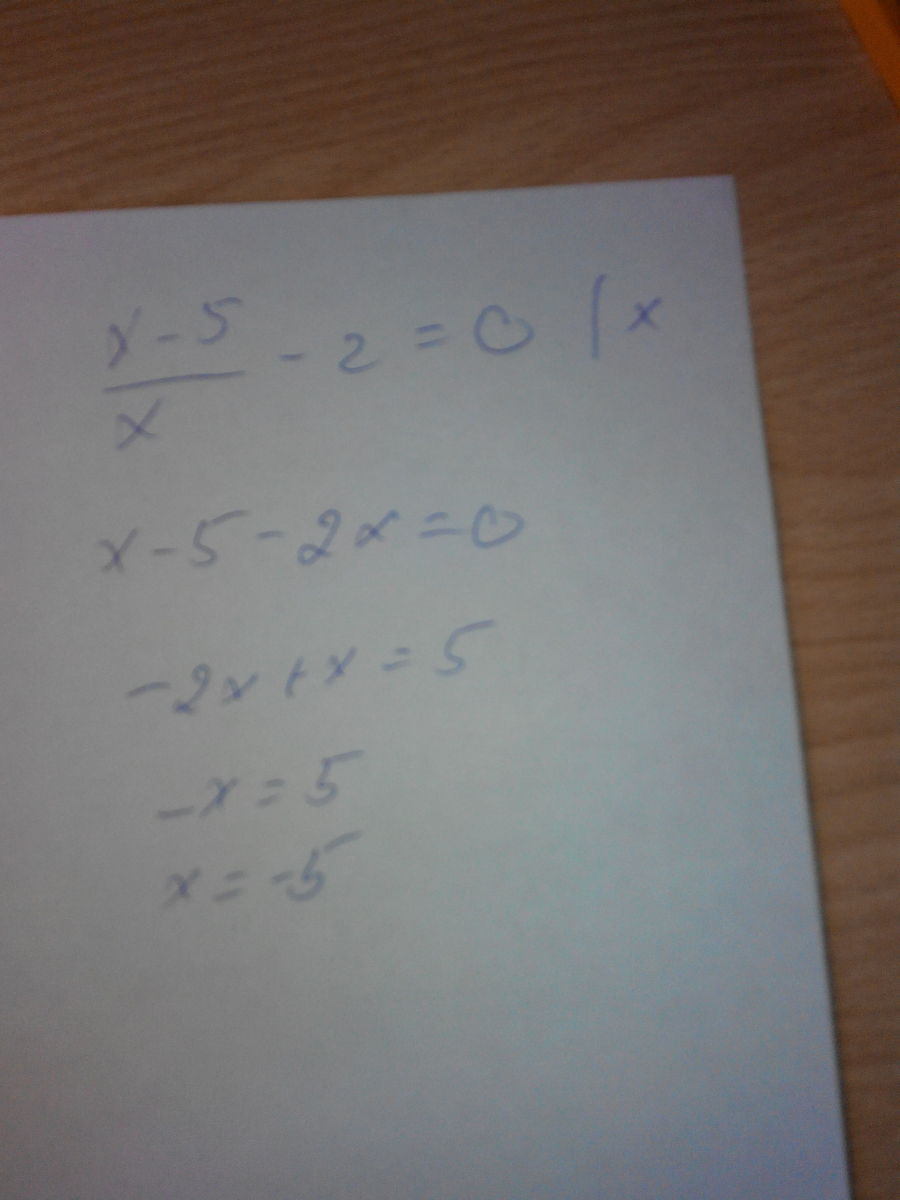 x - 5 / x - 2 = 0 | x
x - 5 - 2x = 0
-2x + x = 5
-x = 5
x = -5